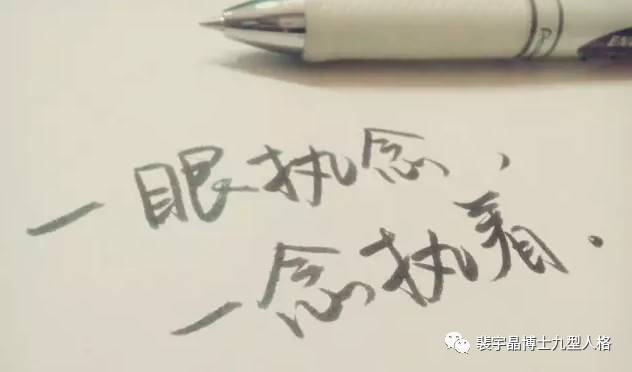 一眼执念、
一念执着.
裴宇晶博士九型人格